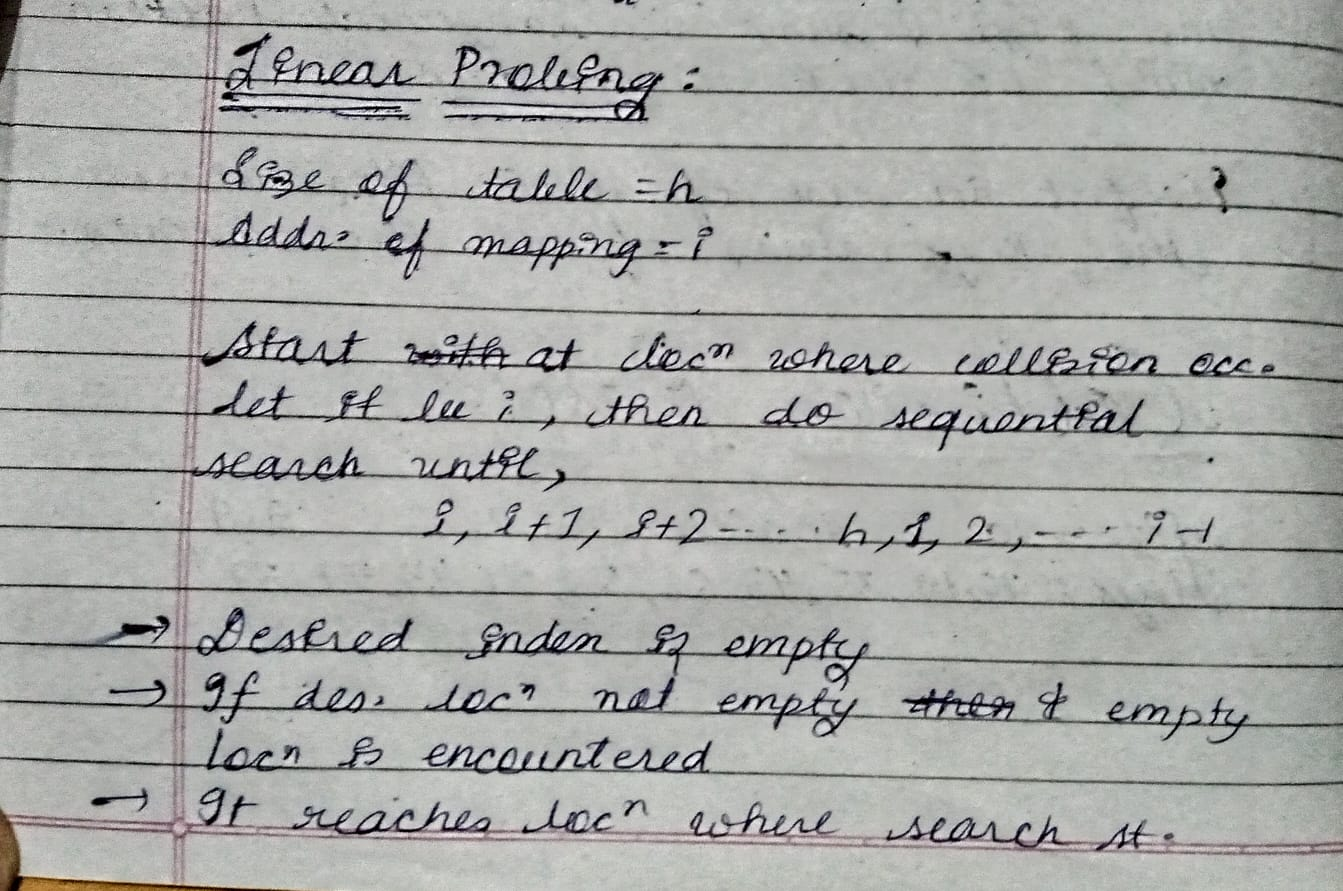 Linear Probing :
Size of table = h
Addr. of mapping = i
Start with at locn where collision occ.
let it be i, then do sequential
search until,
i, i+1, i+2 - - . . . h, 1, 2, - - - . i-1
→ Desired index is empty
→ If des. locn not empty then & empty
locn is encountered
→ It reaches locn where search st.